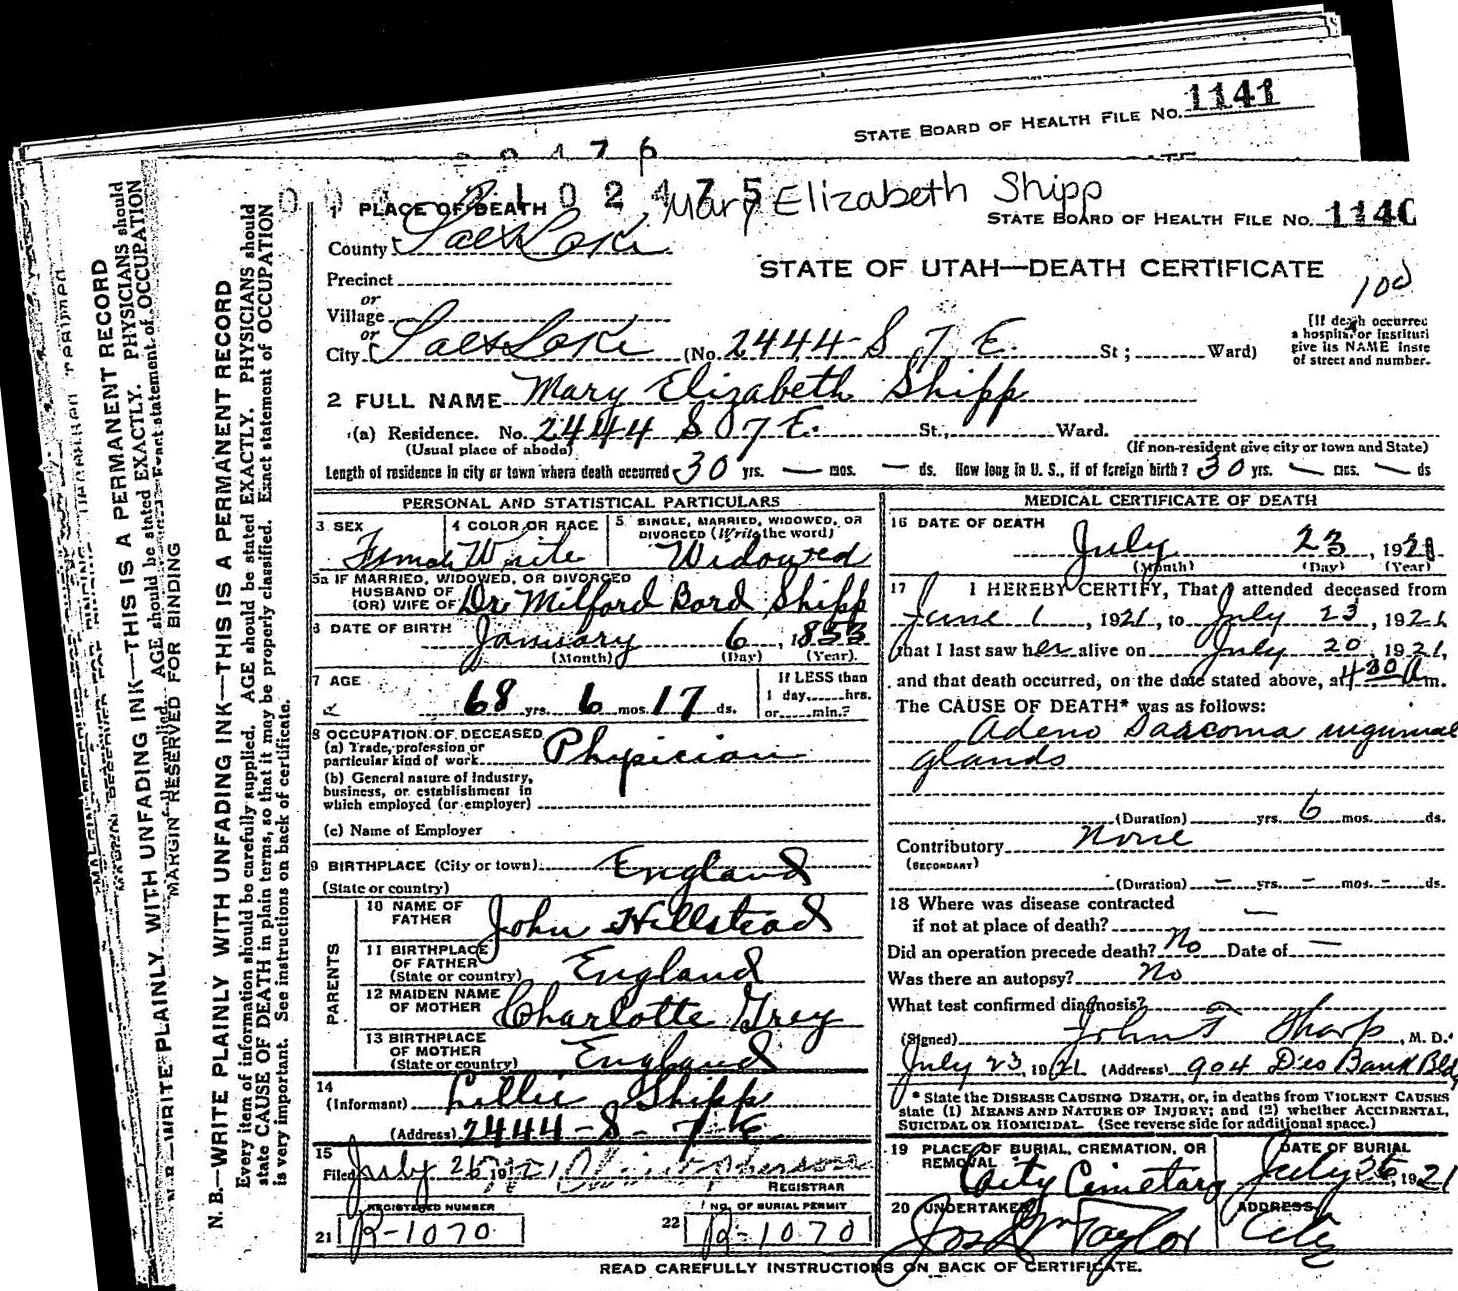 1141
STATE BOARD OF HEALTH FILE NO.
102475
Mary Elizabeth Shipp
STATE BOARD OF HEALTH FILE NO. 1140
1 PLACE OF DEATH
County Salt Lake
STATE OF UTAH—DEATH CERTIFICATE
Precinct
or
Village
or
City Salt Lake (No. 2444-S 7 E. St; Ward)
[If death occurred
a hospital or instituti
give its NAME inste
of street and number.
2 FULL NAME Mary Elizabeth Shipp
(a) Residence. No. 2444 SO 7 E. St., Ward.
(Usual place of abode) (If non-resident give city or town and State)
Length of residence in city or town where death occurred 30 yrs. — mos. — ds. How long in U. S., if of foreign birth? 30 yrs. — mos. — ds
PERSONAL AND STATISTICAL PARTICULARS
3 SEX 4 COLOR OR RACE 5 SINGLE, MARRIED, WIDOWED, OR
DIVORCED (Write the word)
Female White Widowed
5a IF MARRIED, WIDOWED, OR DIVORCED
HUSBAND OF
(OR) WIFE OF Dr Milford Bord Shipp
6 DATE OF BIRTH January 6, 1853
(Month) (Day) (Year).
7 AGE If LESS than
68 yrs. 6 mos. 17 ds. 1 day, hrs.
or min.?
8 OCCUPATION OF DECEASED
(a) Trade, profession or
particular kind of work Physician
(b) General nature of Industry,
business, or establishment in
which employed (or employer)
(c) Name of Employer
9 BIRTHPLACE (City or town) England
(State or country)
PARENTS
10 NAME OF
FATHER John Hillstead
11 BIRTHPLACE
OF FATHER
(State or country) England
12 MAIDEN NAME
OF MOTHER Charlotte Grey
13 BIRTHPLACE
OF MOTHER
(State or country) England
14
(Informant) Lillie Shipp
(Address) 2444-S-7 E.
15
Filed July 26 1921
REGISTRAR
REGISTERED NUMBER
21 R-1070
NO. OF BURIAL PERMIT
22 R-1070
MEDICAL CERTIFICATE OF DEATH
16 DATE OF DEATH
July 23, 1921
(Month) (Day) (Year)
17 I HEREBY CERTIFY, That I attended deceased from
June 1, 1921, to July 23, 1921,
that I last saw her alive on July 20, 1921,
and that death occurred, on the date stated above, at 430 A m.
The CAUSE OF DEATH* was as follows:
Adeno Sarcoma inguinal
glands
(Duration) yrs. 6 mos. ds.
Contributory None
(SECONDARY)
(Duration) – yrs. – mos. – ds.
18 Where was disease contracted
if not at place of death? —
Did an operation precede death? No Date of —
Was there an autopsy? No
What test confirmed diagnosis?
(Signed) John F Sharp, M. D.
July 23, 1921 (Address) 904 Des Bank Bld
* State the DISEASE CAUSING DEATH, or, in deaths from VIOLENT CAUSES
state (1) MEANS AND NATURE OF INJURY; and (2) whether ACCIDENTAL,
SUICIDAL OR HOMICIDAL. (See reverse side for additional space.)
19 PLACE OF BURIAL, CREMATION, OR
REMOVAL
City Cimetary
DATE OF BURIAL
July 26, 1921
20 UNDERTAKER
Jos Wm Taylor
ADDRESS
City
READ CAREFULLY INSTRUCTIONS ON BACK OF CERTIFICATE.
MARGIN RESERVED FOR BINDING
N. B.—WRITE PLAINLY WITH UNFADING INK—THIS IS A PERMANENT RECORD
Every item of information should be carefully supplied. AGE should be stated EXACTLY. PHYSICIANS should
state CAUSE OF DEATH in plain terms, so that it may be properly classified. Exact statement of OCCUPATION
is very important. See instructions on back of certificate.